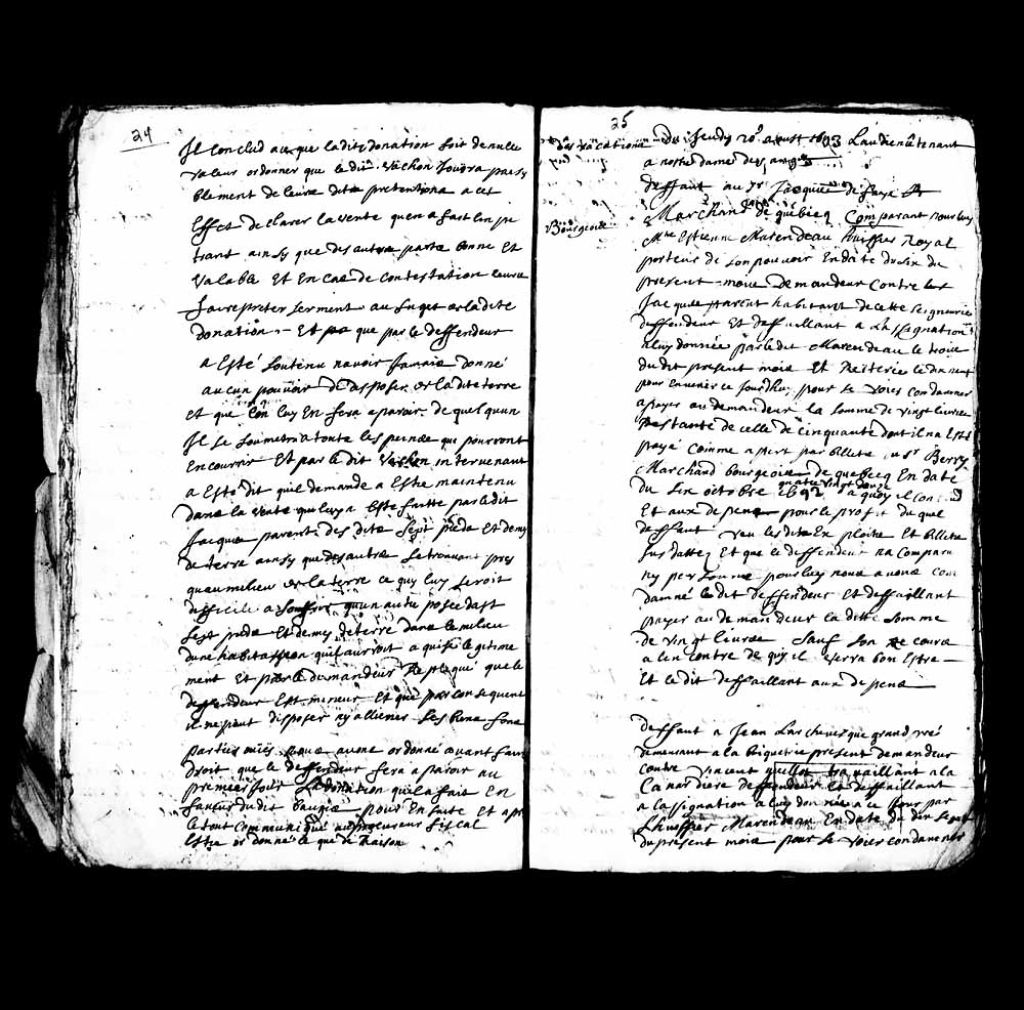 24
Il conclud a ce que ladite donation soit de nulle
valeur ordonner que le dit vachon Jouira paisi
blement de leurs dites pretentions a cet
effet declarer la vente quen a fait
trant ainsy que des autres parts bonne Et
valable Et En cas de Contestation leurs
faire prester serment au suget de ladite
donation Et que par le deffendeur
a Esté soutenu navoir Jamais donné
aucun pouvoir de disposer de ladite terre
et que Lon luy En fera aparoir de quelquun
Il se soumetra toute les peines qui pourront
Encourrir Et par le dit vachon intervenant
a Esté dit quil demande a Estre maintenu
dans la vente qui luy a Esté faitte par ledit
Jacques parent des dits Sept pieds Et demy
de terre ainsy que des autres se trouvant pres
quau milieu de la terre ce quy luy seroit
difficile a souffrir quun autre posedast
Sept pieds Et demy de terre dans le milieu
dune habitassion quil auroit aquise legitime
ment Et par le demandeur Repliqué que le
deffendeur Est mineur Et que par consequent
il ne peut disposer ny alliener ses biens fons
parties ouies nous avons ordonné avant faire
droit que le deffendeur fera aparoir au
premier Jour La donation quil a fait En
faveur du dit pour En suite Et apres
le tout communiqué au procureur fiscal
Estre ordonné ce que de Raison
25
des vacations
Du Jeudy 20e aoust 1693 Laudience tenant
a nostre dame des anges
Bourgeois
deffaut au Sr Jacques de faye
Marchand de quebecq Comparant pour luy
Mtre Estienne Marendeau huissier Royal
porteur de son pouvoir En date du six du
present mois demandeur Contre
Jacques parent habitant de cette seigneurie
deffendeur Et deffaillant a La signation
a luy donnée par ledit Marendeau le trois
du dit present mois Et Reiterée
pour En venir ce Jourdhuy pour se voir condamner
a payer au demandeur la somme de vingt livres
Restante de celle de cinquante dont il na Esté
payé comme apert par billets du Sr Berry
Marchand bourgeois de quebecq En date
du six octobre 1692 quatre vingt douze a quoy il con
Et aux depens pour le profit du quel
deffaut veu les dits Exploits Et billets
sus dattez Et que le deffendeur na comparu
ny personne pour luy nous avons con
damné le dit deffendeur Et deffaillant
payer au demandeur la ditte somme
de vingt livres Sauf son Recours
a lencontre de qui il verra bon Estre
Et le dit deffaillant aux depens
deffaut a Jean Larchevesque grand pré
demeurant a la Biquetrie present demandeur
contre vincent guillot travaillant a la
Canardiere deffendeur Et deffaillant
a la signation a luy donnée a ce Jour par
Lhuissier Marendeau En date du dix sept
du present mois pour se voir condamner